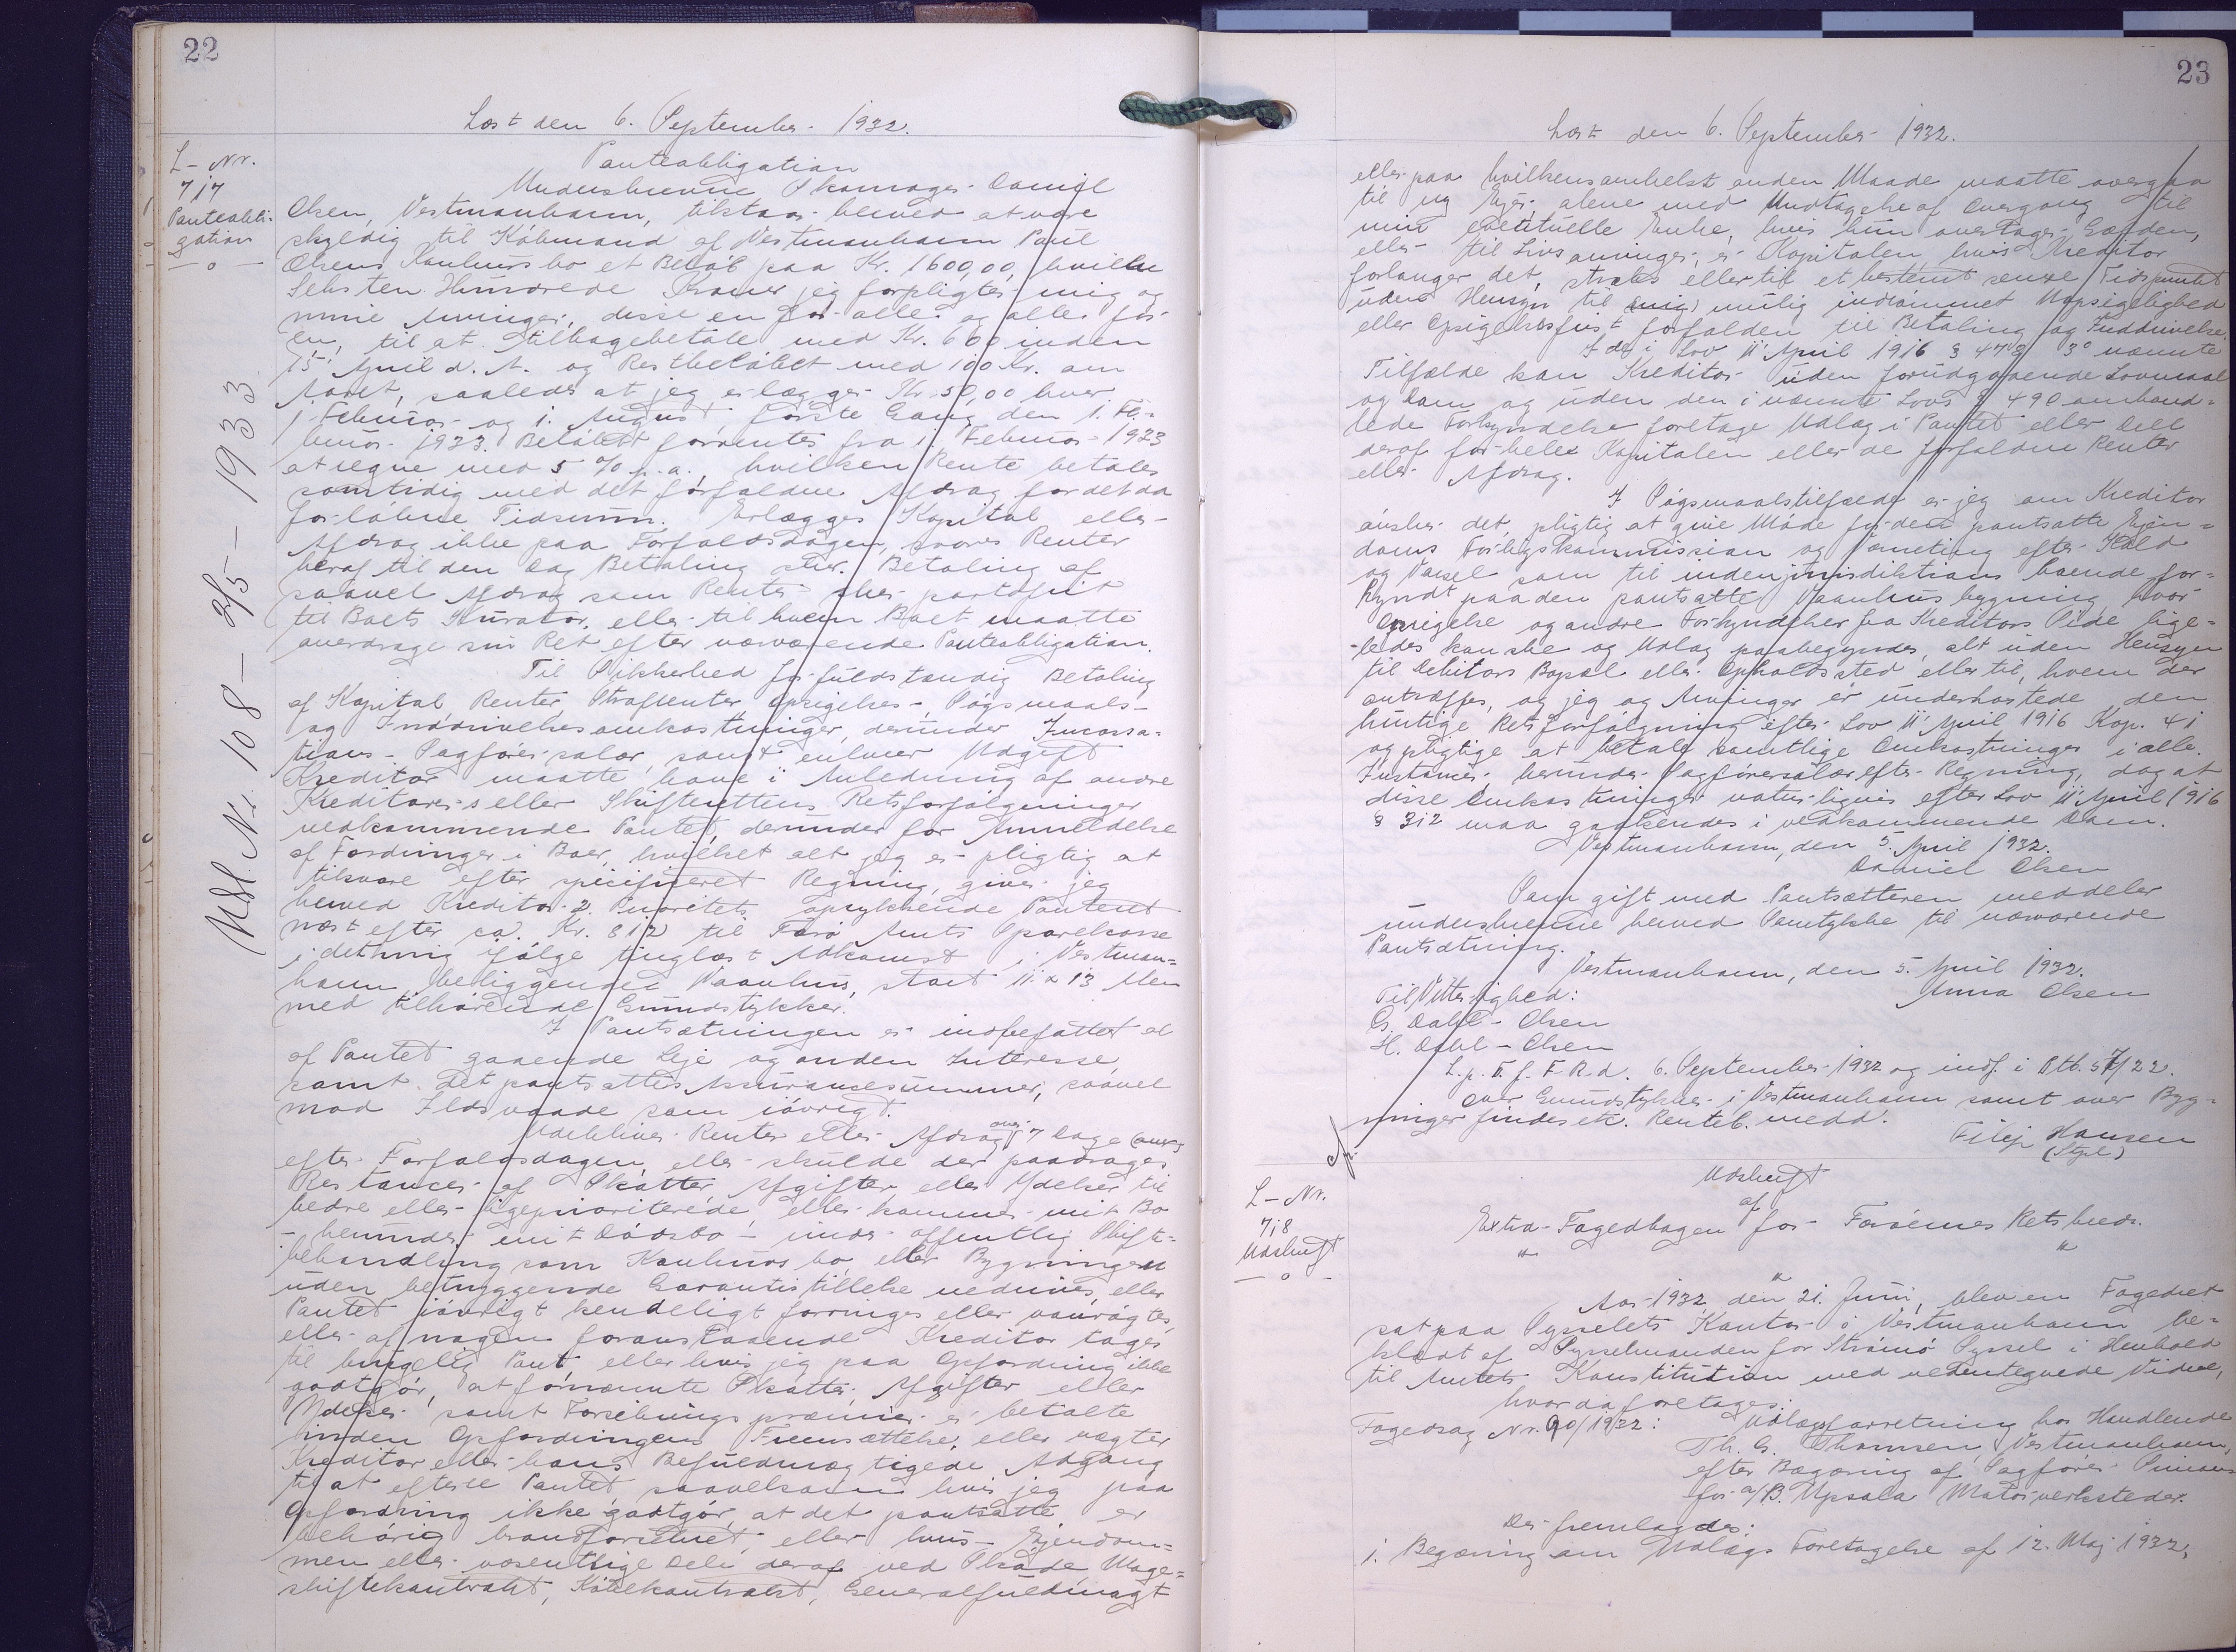 22
Læst den 6. September 1932.
L-Nr.
717
Panteobli-
gation
Udsl. Nr. 108 - 2/5 - 1933
Panteobligation
Undertegnede Skomager Daniel
Olsen, Vestmanhavn, tilstaar herved at være
skyldig til Købmand af Vestmanhavn Paul
Olsens Konkursbo et Beløb paa Kr. 1600,00, hvilke
Seksten Hundrede Kroner jeg forpligter mig og
mine Arvinger, disse en for alle og alle for
en, til at tilbagebetale med Kr. 600 inden
15' April d. A. og Restbeløbet med 100 Kr. om
Aaret, saaledes at jeg erlægger Kr. 50,00 hver
1 Februar og 1. August første Gang den 1. Fe-
bruar 1933. Beløbet forrentes fra 1. Februar 1933
at regne med 5 % p.a., hvilken Rente betales
samtidig med det forfaldne Afdrag for det da
forløbne Tidsrum. Erlægges Kapital eller
Afdrag ikke paa Forfaldsdagen, svares Renter
heraf til den Dag Betaling sker. Betaling af
saavel Afdrag som Renter sker portofrit
til Boets Kurator, eller til hvem Boet maatte
overdrage sin Ret efter nærværende Panteobligation.
Til Sikkerhed for fuldstændig Betaling
af Kapital, Renter, Strafrenter, Opsigelses-, Søgsmaals-
og Inddrivelsesomkostninger, derunder Incassa-
tions- Sagførersalær, samt enhver Udgift
Kreditor maatte have i Anledning af andre
Kreditorers eller Skifterettens Retsforfølgninger
vedkommende Pantet, derunder for Anmeldelse
af Fordringer i Boer, hvilket alt jeg er pligtig at
tilsvare efter specificeret Regning, giver jeg
herved Kreditor 2. Prioritets oprykkende Panteret
næst efter ca. Kr. 812 til Færø Amts Sparekasse
i det mig ifølge tinglæst Adkomst i Vestman-
havn beliggende Vaanhus, stort 11 x 13 Alen
med tilhørende Grundstykker.
I Pantsætningen er indbefattet al
af Pantet gaaende Leje og anden Interesse,
samt det pantsattes Assurancesummer, saavel
mod Ildsvaade som iøvrigt.
Udebliver Renter eller Afdrag over 7 Dage (over)
efter Forfaldsdagen, eller skulde der paadrages
Restancer af Skatter, Afgifter eller Ydelser til
bedre eller ligeprioriterede, eller kommer mit Bo
- herunder mit Dødsbo - under offentlig Skifte-
behandling som Konkursbo, eller Bygningen
uden betryggende Garantistillelse nedrives, eller
Pantet iøvrigt kendeligt forringes eller vanrøgtes,
eller af nogen foranstaaende Kreditor tages
til brugelig Pant eller hvis jeg paa Opfordring ikke
godtgør, at fornævnte Skatter, Afgifter eller
Ydelser samt Forsikringspræmier er betalte
inden Opfordringens Fremsættelse, eller nægter
Kreditor eller hans Befuldmægtigede Adgang
til at efterse Pantet saavelsom hvis jeg paa
Opfordring ikke godtgør, at det pantsatte er
behørig brandforsikret, eller hvis Ejendom-
men eller væsentlige Dele deraf ved Skøde, Mage-
skiftekontrakt, Købekontrakt, Generalfuldmagt
23
Læst den 6. September 1932.
eller paa hvilkensomhelst anden Maade maatte overgaa
til ny Ejer, alene med Undtagelse af Overgang til
min eventuelle Enke, hvis hun overtager Gælden,
eller til Livsarvinger, er Kapitalen, hvis Kreditor
forlanger det, straks eller til et bestemt senere Tidspunkt
uden Hensyn til (mig) mulig indrømmet Uopsigelighed
eller Opsigelsesfrist forfalden til Betaling og Inddrivelse.
I de i Lov 11' April 1916 § 478 3° nævnte
Tilfælde kan Kreditor uden forudgaaende Lovmaal
og Dom og uden den i nævnte Lovs § 490 omhand-
lede Forkyndelse foretage Udlæg i Pantet eller Dele
deraf for hele Kapitalen eller de forfaldne Renter
eller Afdrag.
I Søgsmaalstilfælde er jeg om Kreditor
ønsker det, pligtig at give Møde for den pantsatte Ejen-
doms Forligskommission og Værneting efter Kald
og Varsel som til indenjurisdiktions boende for-
kyndt paa den pantsatte Vaanhusbygning hvor
Opsigelse og andre Forkyndelser fra Kreditors Side lige-
-ledes kan ske og Udlæg paabegyndes, alt uden Hensyn
til Debitors Bopæl eller Opholdssted eller til, hvem der
antræffes, og jeg og Arvinger er underkastede den
hurtige Retsforfølgning efter Lov 11' April 1916 Kap. 41
og pligtige at betale samtlige Omkostninger i alle
Instanser, herunder Sagførersalær efter Regning, dog at
disse Omkostninger naturligvis efter Lov 11' April 1916
§ 312 maa godkendes i vedkommende Dom.
Vestmanhavn, den 5. April 1932.
Daniel Olsen
Som gift med Pantsætteren meddeler
underskrevne herved Samtykke til nærværende
Pantsætning.
Vestmanhavn, den 5. April 1932.
Til Vitterlighed: Anna Olsen
G. Dahl-Olsen
H. Dahl-Olsen
L. p. T. f. F. R. d. 6. September 1932 og indf. i Ptb. 57/22.
Over Grundstykker i Vestmanhavn samt over Byg-
ninger findes etc. Renteb. medd.
Filip Hansen
(Sgl.)
L-Nr.
718
Udskrift
Udskrift
af
Extra-Fogedbogen for Færøernes Retskreds.
" " "
Aar 1932, den 21. Juni, blev en Fogedret
sat paa Sysselets Kontor i Vestmanhavn be-
klædt af Sysselmanden for Strømø Syssel i Henhold
til Amtets Konstitution med vedentegnede Vidner,
hvor da foretages:
Fogedsag Nr. 90/1932: Udlægsforretning hos Handlende
Th. G. Thomsen, Vestmanhavn,
efter Begæring af Sagfører
for A/B. Upsala Motorverksteder.
Der fremlagdes:
1. Begæring om Udlægs Foretagelse af 12. Maj 1932,